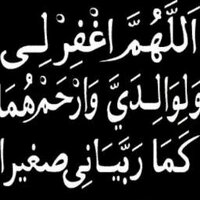 اَللّٰهُمَّ اغْفِرْ لِى
وَلِوَالِدَيَّ وَارْحَمْهُمَا
كَمَا رَبَّيَانِى صَغِيْرًا